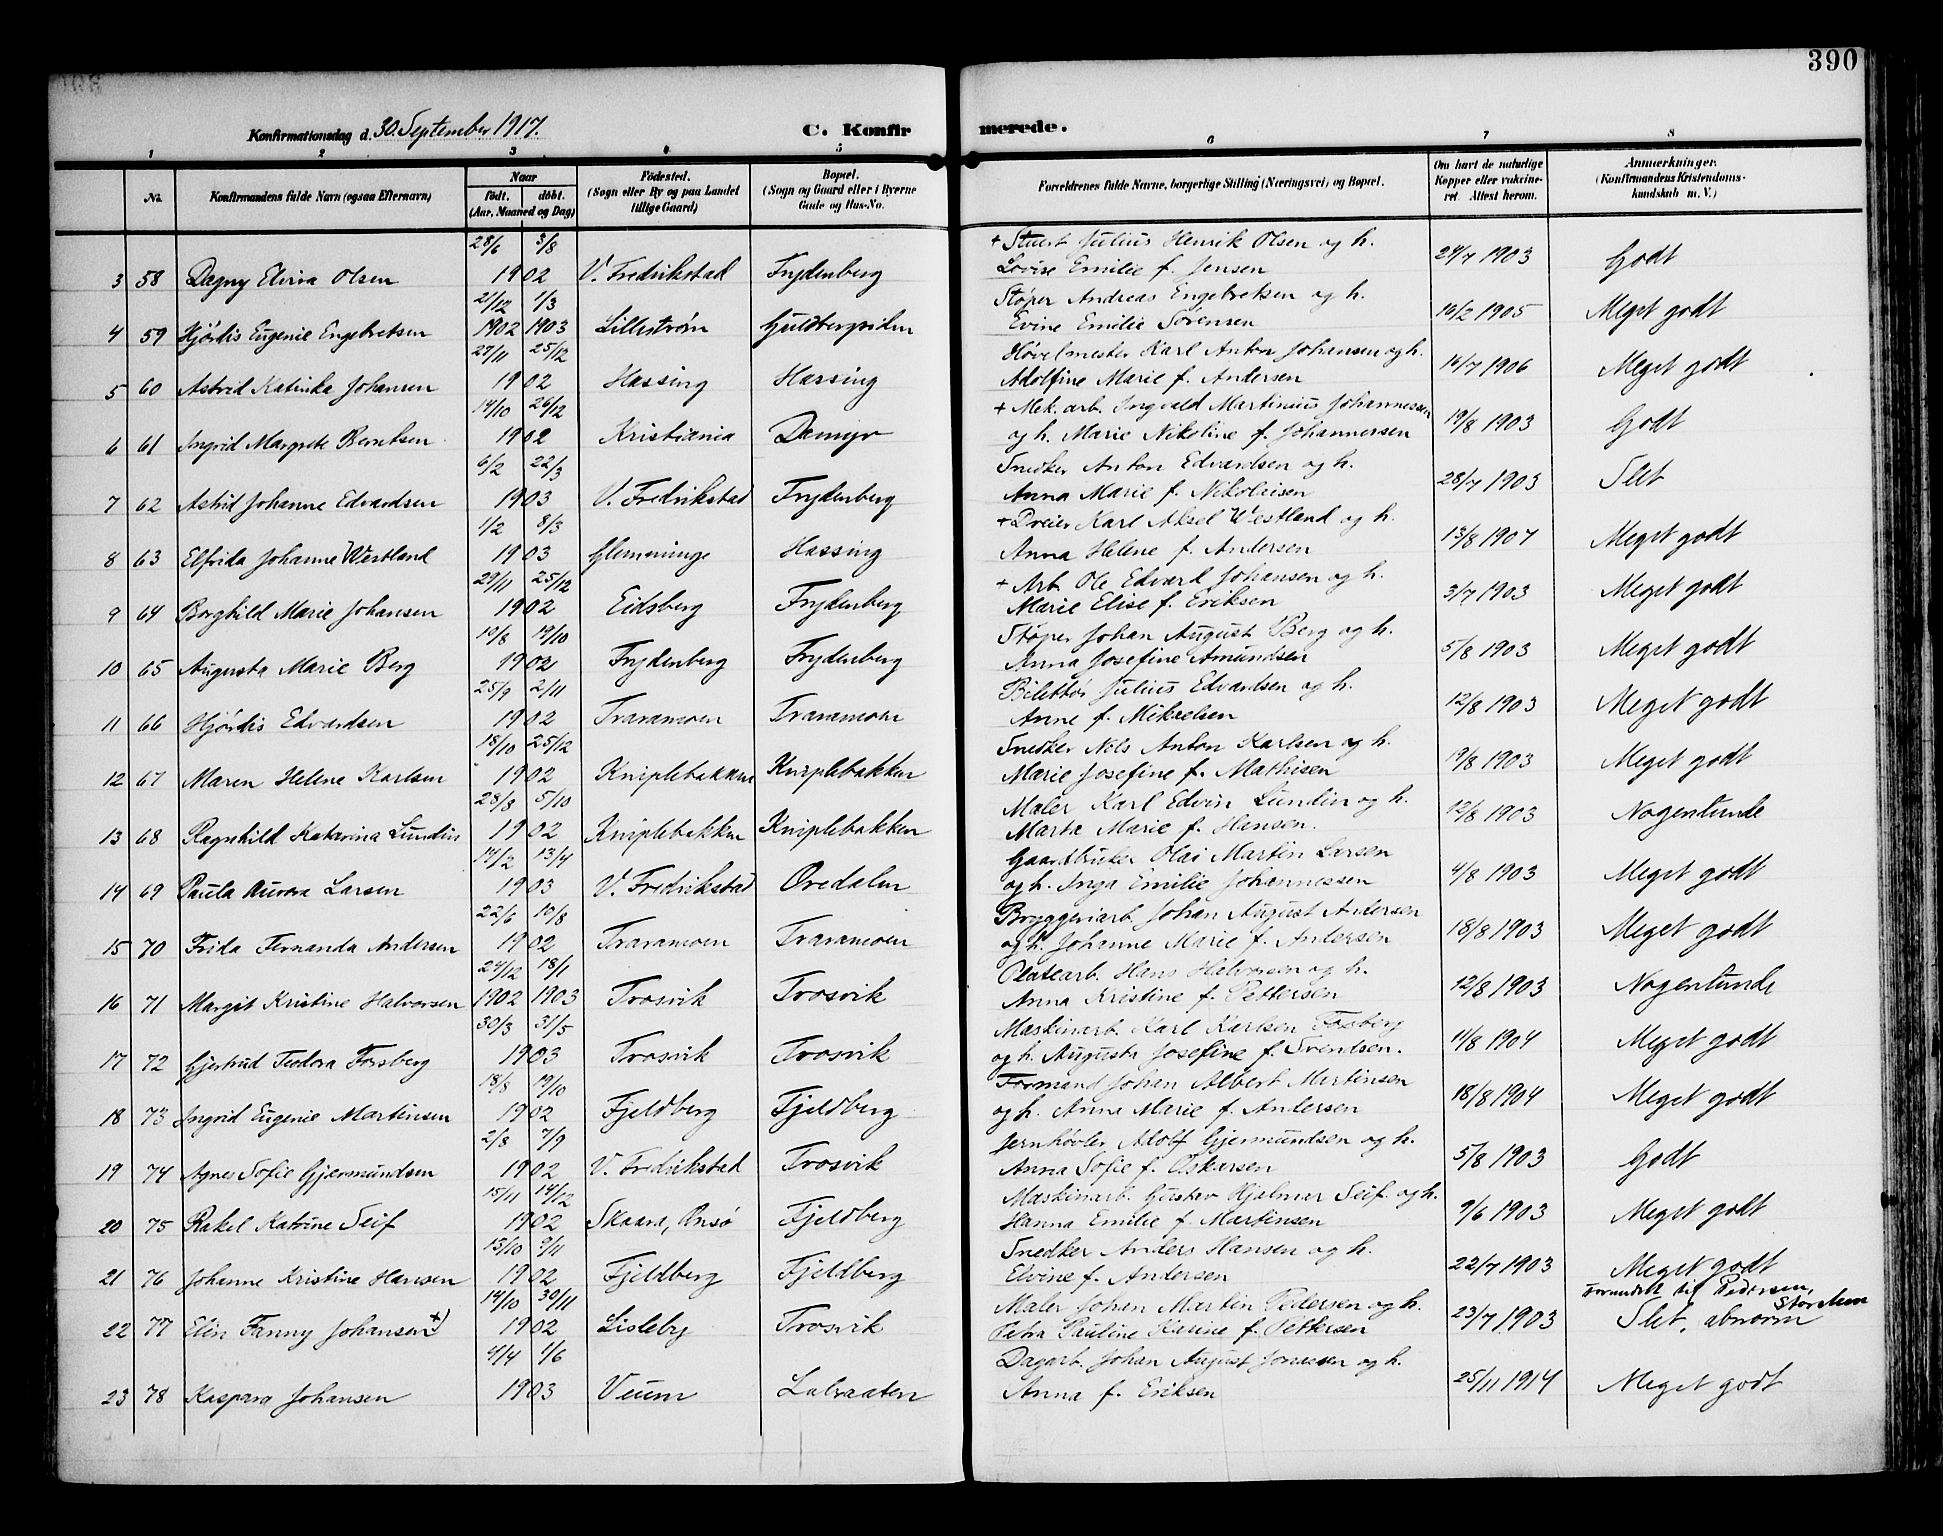 390
Konfirmationsdag d. 30. September 1917.
C. Konfirmerede.
1 2 3 4 5 6 7 8
No. Konfirmandens fulde Navn (ogsaa Efternavn) Naar født. døbt. (Aar, Maaned og Dag) Fødested. (Sogn eller By og paa Landet tillige Gaard) Bopæl. (Sogn og Gaard eller i Byerne Gade og Hus-No. Forældrenes fulde Navne, borgerlige Stilling (Næringsvei) og Bopæl. Om havt de naturlige Kopper eller vaccineret. Attest herom. Anmærkninger. (Konfirmandens Kristendomskundskab m. V.)
28/6 3/8 + Stuert Julius Henrik Olsen og h.
3 58 Dagny Elvira Olsen 1902 V. Fredrikstad Frydenberg Lovise Emilie f. Jensen 24/7 1903 Godt
21/12 1/3 Støper Andreas Engebretsen og h.
4 59 Hjördis Eugenie Engebretsen 1902 1903 Lillestrøm Guldbergsiden Evine Emilie Sörensen 16/2 1905 Meget godt
27/11 25/12 Høvelmester Karl Anton Johansen og h.
5 60 Astrid Katinka Johansen 1902 Hassing Hassing Adolfine Marie f. Andersen 16/7 1906 Meget godt
14/10 26/12 + Mek. arb. Ingvald Martinius Johannessen
6 61 Ingrid Margrete Berntsen 1902 Kristiania Damyr og h. Marie Nikoline f. Johannersen 19/8 1903 Godt
6/2 22/3 Snedker Anton Edvardsen og h.
7 62 Astrid Johanne Edvardsen 1903 V. Fredrikstad Frydenberg Anna Marie f. Nikolaisen 28/7 1903 Slet
1/2 8/3 + Dreier Karl Aksel Westland og h.
8 63 Elfrida Johanne Westland 1903 Glemminge Hassing Anna Helene f. Andersen 13/8 1907 Meget godt
29/11 25/12 + Arb. Ole Edvard Johansen og h.
9 64 Borghild Marie Johansen 1902 Eidsberg Frydenberg Marie Elise f. Eriksen 3/7 1903 Meget godt
10/8 19/10 Støper Johan August Berg og h.
10 65 Augusta Marie Berg 1902 Frydenberg Frydenberg Anna Josefine Amundsen 5/8 1903 Meget godt
25/9 2/11 Bilettør Julius Edvardsen og h.
11 66 Hjördis Edvardsen 1902 Traramoen Traramoen Anne f. Mikaelsen 12/8 1903 Meget godt
18/10 25/12 Snedker Nils Anton Karlsen og h.
12 67 Maren Helene Karlsen 1902 Kniplebakken Kniplebakken Marie Josefine f. Mathisen 19/8 1903 Meget godt
28/8 5/10 Maler Karl Edvin Lundin og h.
13 68 Ragnhild Katarina Lundin 1902 Kniplebakken Kniplebakken Marta Marie f. Hansen. 12/8 1903 Nogenlunde
14/2 13/4 Gaardbruker Olai Martin Larsen
14 69 Paula Aurora Larsen 1903 V. Fredrikstad Oredalen og h. Inga Emilie Johannessen 4/8 1903 Meget godt
22/6 10/8 Bryggeriarb. Johan August Andersen
15 70 Frida Fernanda Andersen 1902 Traramoen Traramoen og h. Johanne Marie f. Andersen 18/8 1903 Meget godt
24/12 18/1 Platearb. Hans Halvorsen og h.
16 71 Margit Kristine Halvorsen 1902 1903 Trosvik Trosvik Anna Kristine f. Pettersen 12/8 1903 Nogenlunde
30/3 31/5 Maskinarb. Karl Karlsen Fosberg
17 72 Gjertrud Teodora Forsberg 1903 Trosvik Trosvik og h. Augusta Josefine f. Svendsen. 11/8 1904 Meget godt
18/8 19/10 Formand Johan Albert Martinsen
18 73 Ingrid Eugenie Martinsen 1902 Fjeldberg Fjeldberg og h. Anne Marie f. Andersen 18/8 1904 Meget godt
2/8 7/9 Jernhøvler Adolf Gjermundsen og h.
19 74 Agnes Sofie Gjermundsen 1902 V. Fredrikstad Trosvik Anna Sofie f. Oskarsen 5/8 1903 Godt
15/11 14/12 Maskinarb. Gustav Hjalmar Seif. og h.
20 75 Rakel Katrine Seif 1902 Skaara, Onsø Fjeldberg Hanna Emilie f. Martinsen 9/6 1903 Meget godt
15/10 9/11 Snedker Anders Hansen og h.
21 76 Johanne Kristine Hansen 1902 Fjeldberg Fjeldberg Elvine f. Andersen 22/7 1903 Meget godt
14/10 30/11 Maler Johan Martin Pedersen og h. til Pedersen,
22 77 Elin Fanny Johansen +) 1902 Lisleby Trosvik Petra Pauline Karine f. Pettersen 23/7 1903 Slet, abnorm
4/4 1/6 Dagarb. Johan August Jonassen og h.
23 78 Kaspara Johansen 1903 Veum Labraaten Anna f. Eriksen 25/11 1914 Meget godt